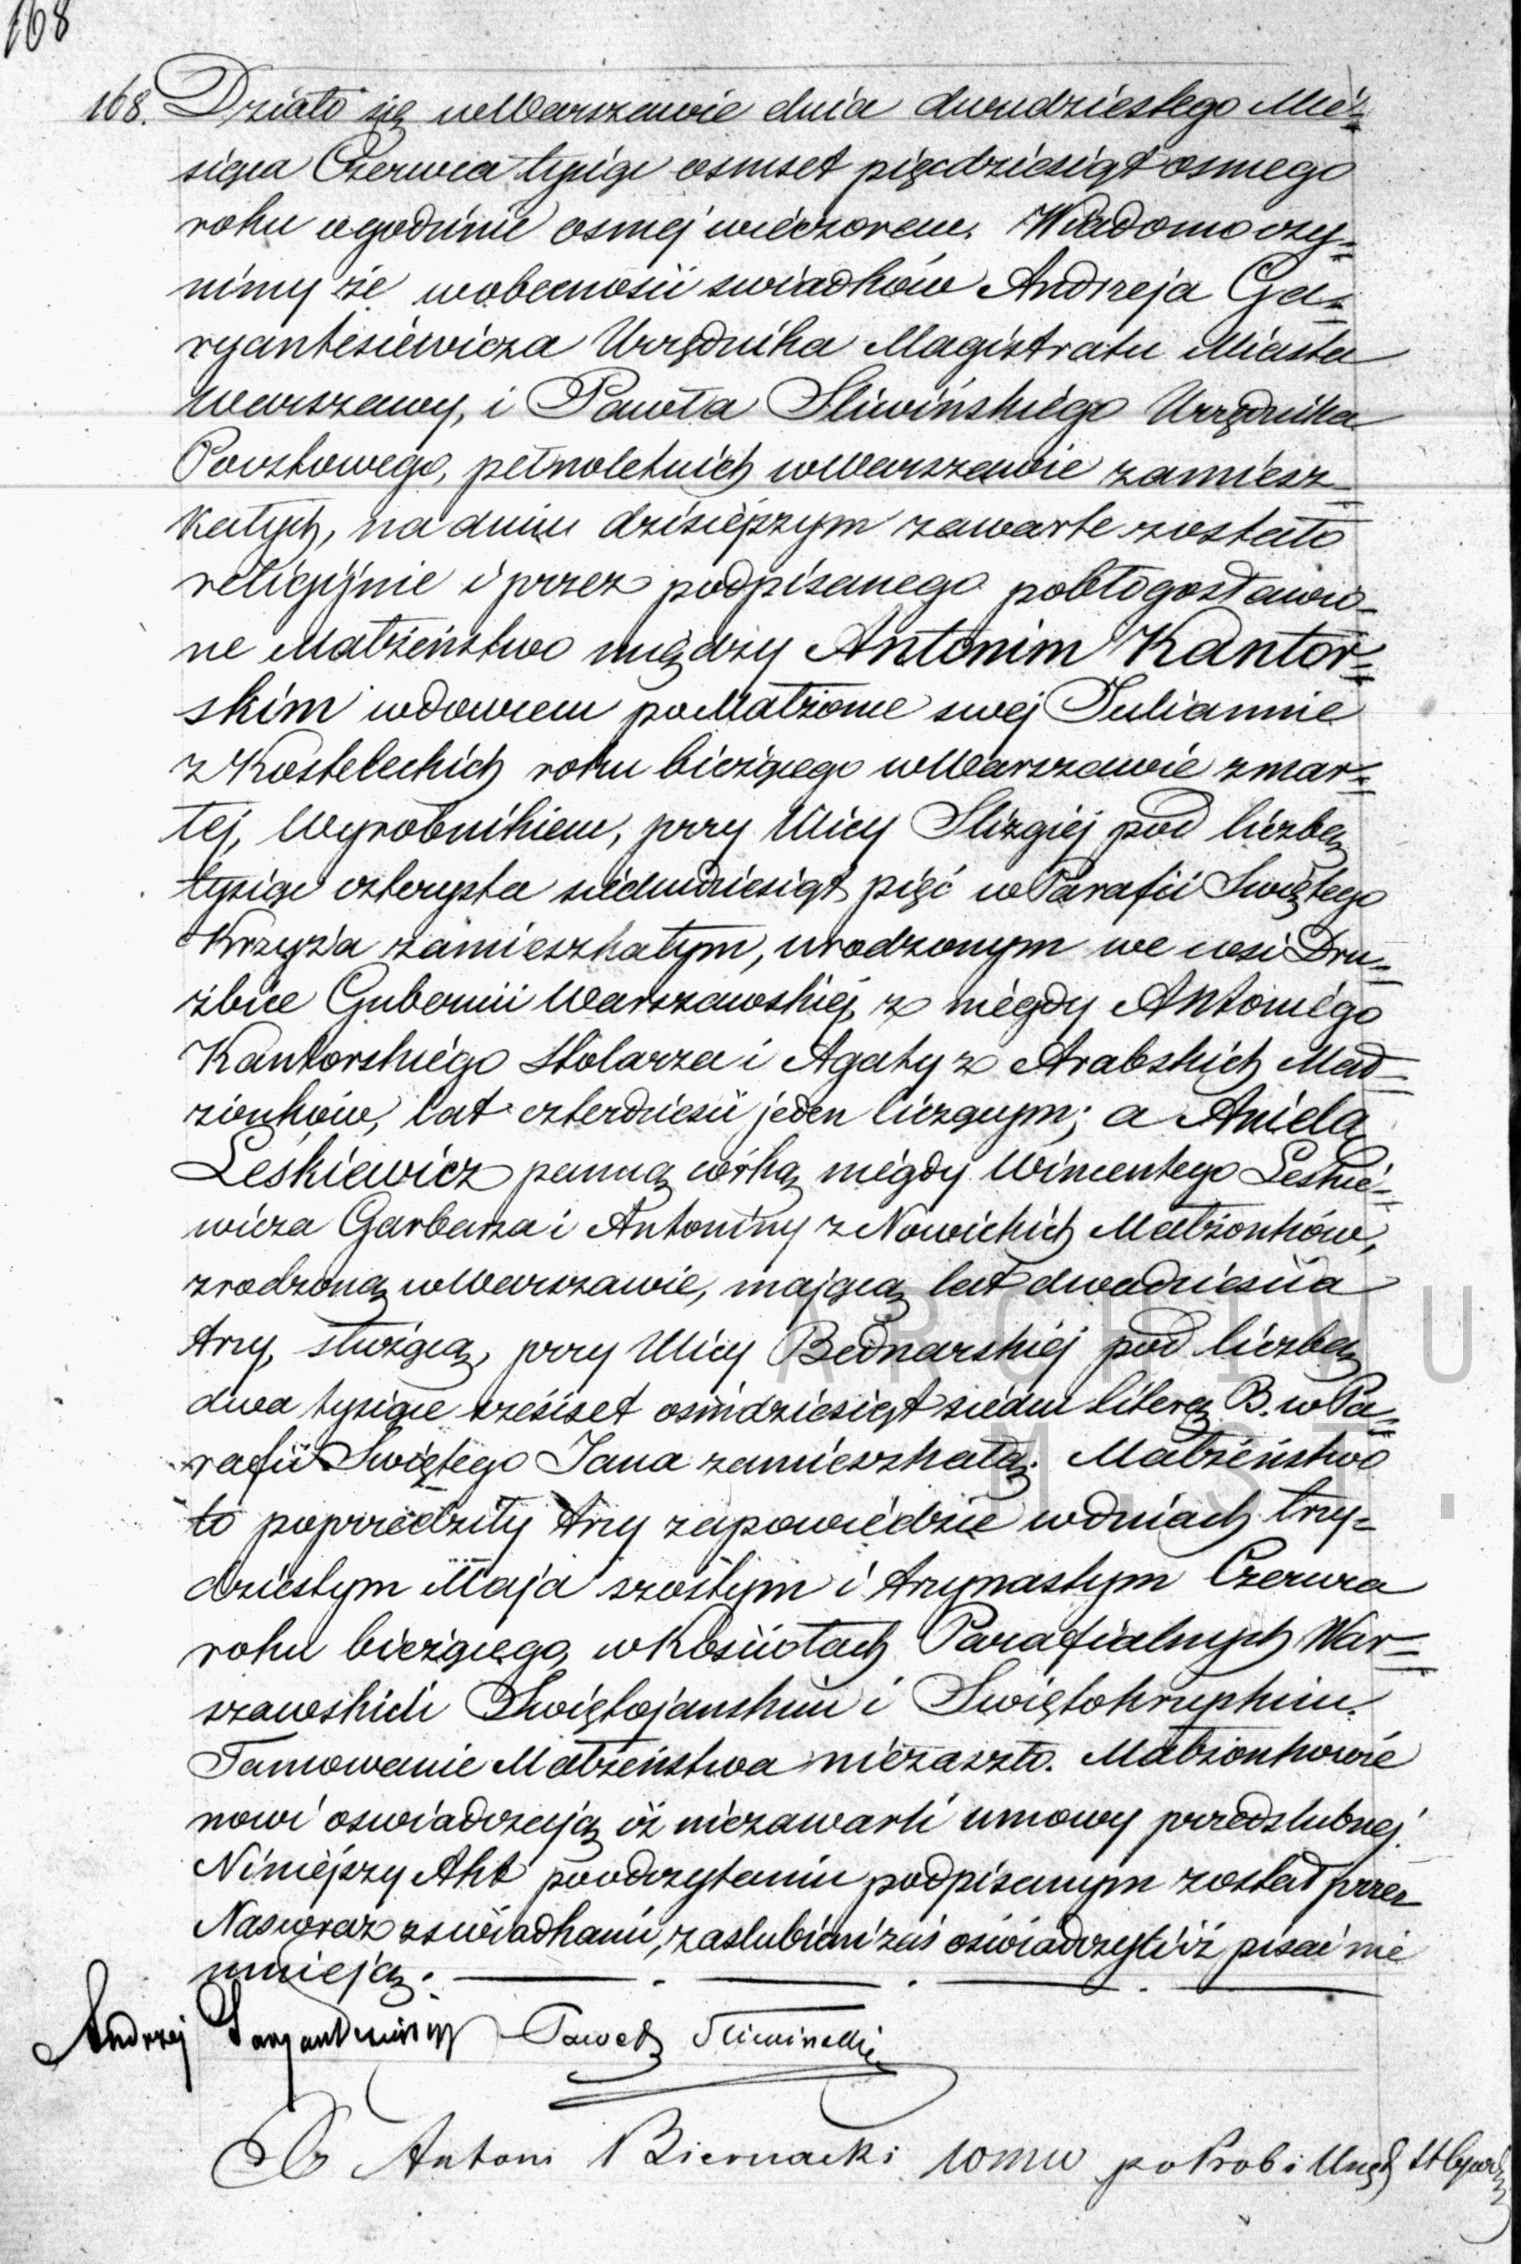 168
168. Działo się w Warszawie dnia dwudziestego Mie-
siąca Czerwca tysiąc osmset pięćdziesiąt osmego
roku o godzinie osmej wieczorem. Wiadomo czy-
nimy że w obecności swiadków Andrzeja Ga-
ryantesiewicza Urzędnika Magistratu Miasta
Warszawy, i Pawła Sliwińskiego Urzędnika
Pocztowego, pełnoletnich w Warszawie zamiesz-
kałych, na dniu dzisiejszym zawarte zostało
religijnie i przez podpisanego pobłogosławio-
ne Małżeństwo między Antonim Kantor-
skim wdowcem po Małżonce swej Juliannie
z Kosteleckich roku bieżącego w Warszawie zmar-
łej, Wyrobnikiem, przy Ulicy Slizgiej pod liczbą
tysiąc czterysta siedmdziesiąt pięć w Parafii Swiętego
Krzyża zamieszkałym, urodzonym we wsi Dru-
żbice Gubernii Warszawskiej, z niegdy Antoniego
Kantorskiego Stolarza i Agaty z Arabskich Mał-
żonków, lat czterdzieści jeden liczącym; a Anielą
Leskiewicz panną córką niegdy Wincentego Leskie-
wicza Garbarza i Antoniny z Nowickich Małżonków,
zrodzoną w Warszawie, mającą lat dwadzieścia
trzy, służącą, przy Ulicy Bednarskiej pod liczbą
dwa tysiące sześćset osmdziesiąt siedm literą B. w Pa-
rafii Swiętego Jana zamieszkałą. Małżeństwo
to poprzedziły trzy zapowiedzie w dniach trzy-
dziestym Maja szóstym i trzynastym Czerwca
roku bieżącego, w Kościołach Parafialnych War-
szawskich Swiętojanskim i Swiętokrzyskim.
Tamowanie Małżeństwa nie zaszło. Małżonkowie
nowi oswiadczają iż niezawarli umowy przedslubnej.
Niniejszy Akt po odczytaniu podpisanym został przez
Nas wraz z swiadkami, zaslubieni zaś oświadczyli iż pisać nie
umieją.
Andrzej Paweł Sliwinski
X Antoni Biernacki
ARCHIWU
M.ST.